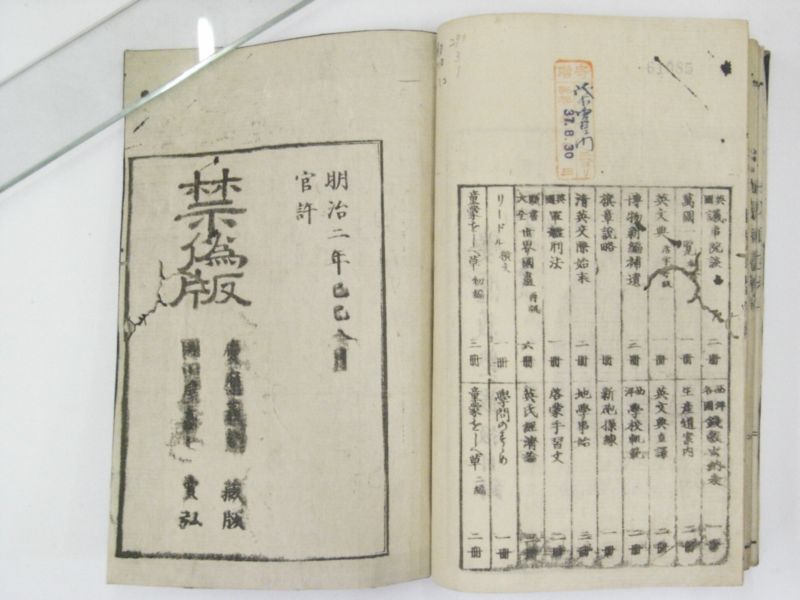 61085
寄贈
37.8.30
英國 議事院談 二冊
萬國一覧 一冊
英文典 一冊
博物新編補遺 三冊
旗章説略 壹冊
清英交際始末 二冊
英國 軍艦刑法 一冊
頭書大全 世界國盡 再版 六冊
リードル 獨文 一冊
童蒙をしへ草 初編 三冊
西洋各國 錢穀出納表 一冊
生產道案内 二冊
英文典直譯 二冊
西洋 學校軌範 二冊
新砲操練 一冊
地學事始 三冊
啓蒙手習文 二冊
英氏經濟論
學問のすゝめ 一冊
童蒙をしへ草 二編 二冊
明治二年己巳 月
官許
禁偽版
慶應義塾 藏版
賣弘